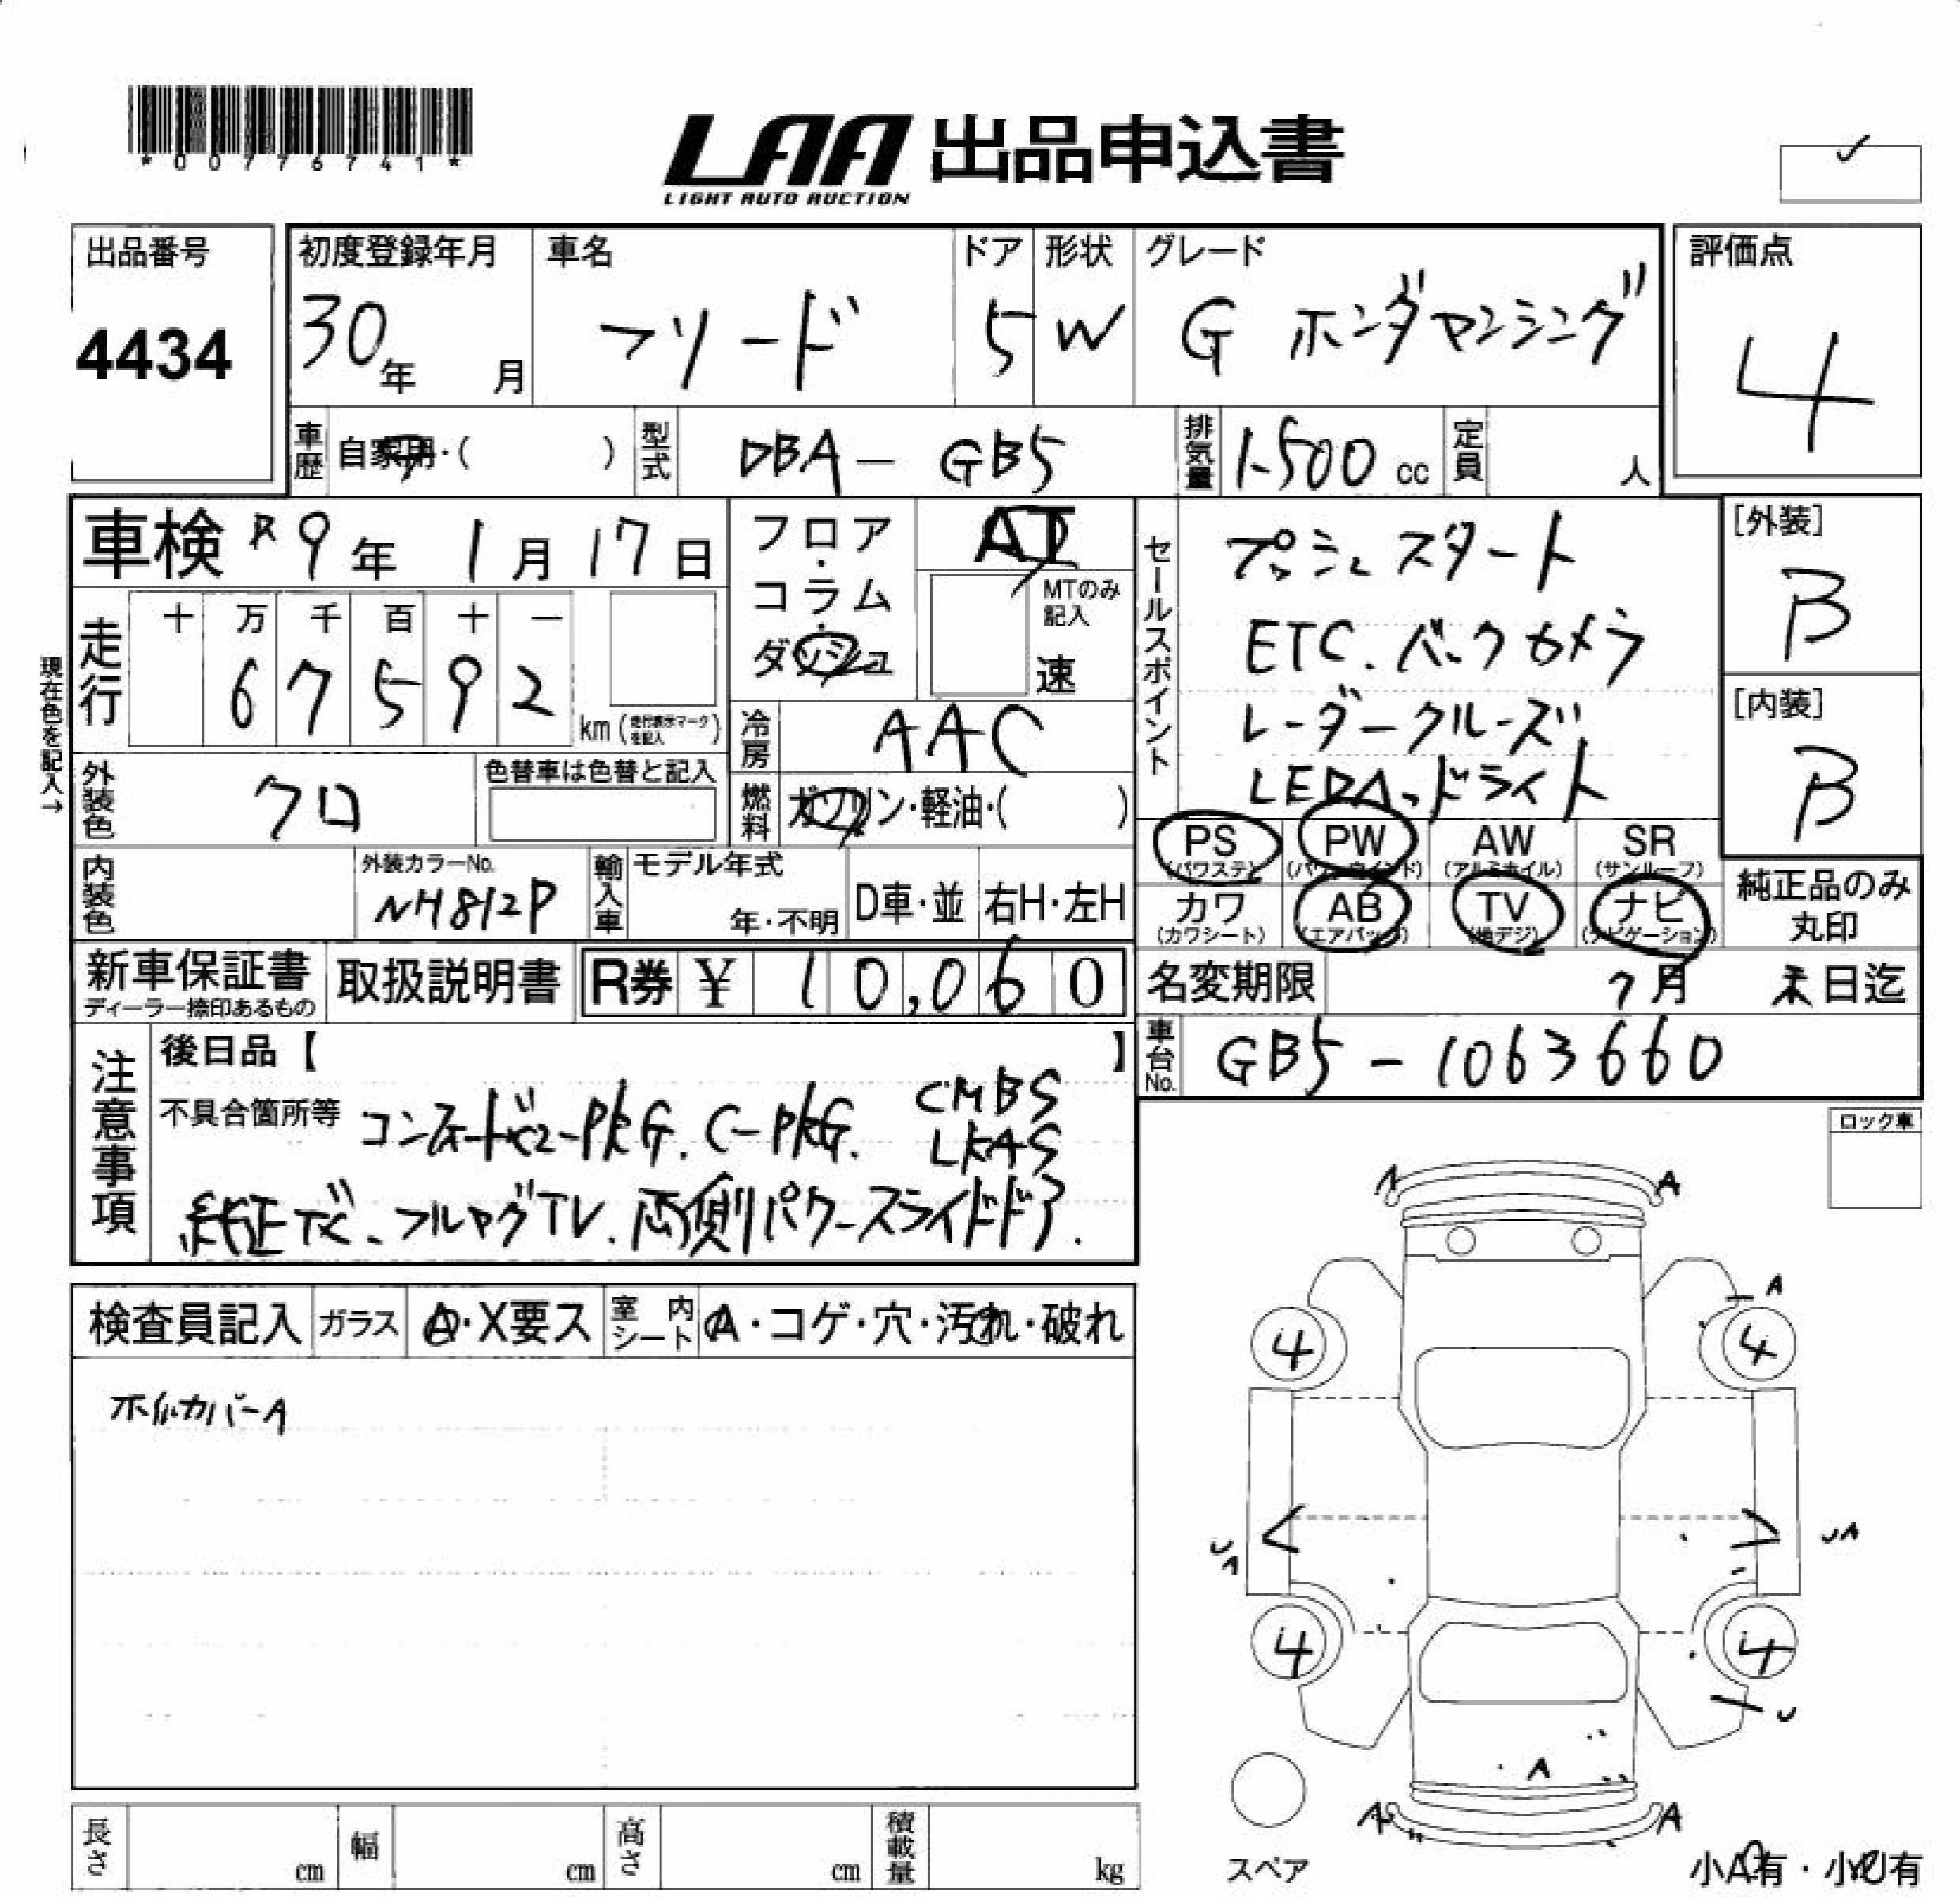 *00776741*
LAA 出品申込書
LIGHT AUTO AUCTION
出品番号
4434
初度登録年月
30年 月
車名
フリード
ドア
5
形状
W
グレード
G ホンダセンシング
評価点
4
車歴
自家用・( )
型式
DBA-GB5
排気量
1500 cc
定員
人
車検 R9年 1月 17日
フロア・コラム・ダッシュ
AT
MTのみ記入
速
走行
十 万 千 百 十 一
6 7 5 9 2
km (走行表示マークを記入)
現在色を記入→
冷房
AAC
外装色
クロ
色替車は色替と記入
燃料
ガソリン・軽油・( )
内装色
外装カラーNo.
NH812P
輸入車
モデル年式
年・不明
D車・並
右H・左H
セールスポイント
プッシュスタート
ETC.バックカメラ
レーダークルーズ
LEDヘッドライト
[外装]
B
[内装]
B
PS
(パワステ)
PW
(パワーウインド)
AW
(アルミホイル)
SR
(サンルーフ)
カワ
(カワシート)
AB
(エアバック)
TV
(地デジ)
ナビ
(ナビゲーション)
純正品のみ
丸印
新車保証書
ディーラー捺印あるもの
取扱説明書
R券 ¥ 10,060
名変期限
7月 末日迄
車台No.
GB5-1063660
注意事項
後日品【 】
不具合箇所等
コンフォートビューPKG. C-PKG.
CMBS
LKAS
純正ナビ、フルセグTV.両側パワースライドドア.
ロック車
検査員記入
ガラス
A・X要ス
室内シート
A・コゲ・穴・汚れ・破れ
ホイルカバーA
A
A
4
4
UA
UA
4
4
U
A
A
A
スペア
小A有・小U有
長さ
cm
幅
cm
高さ
cm
積載量
kg